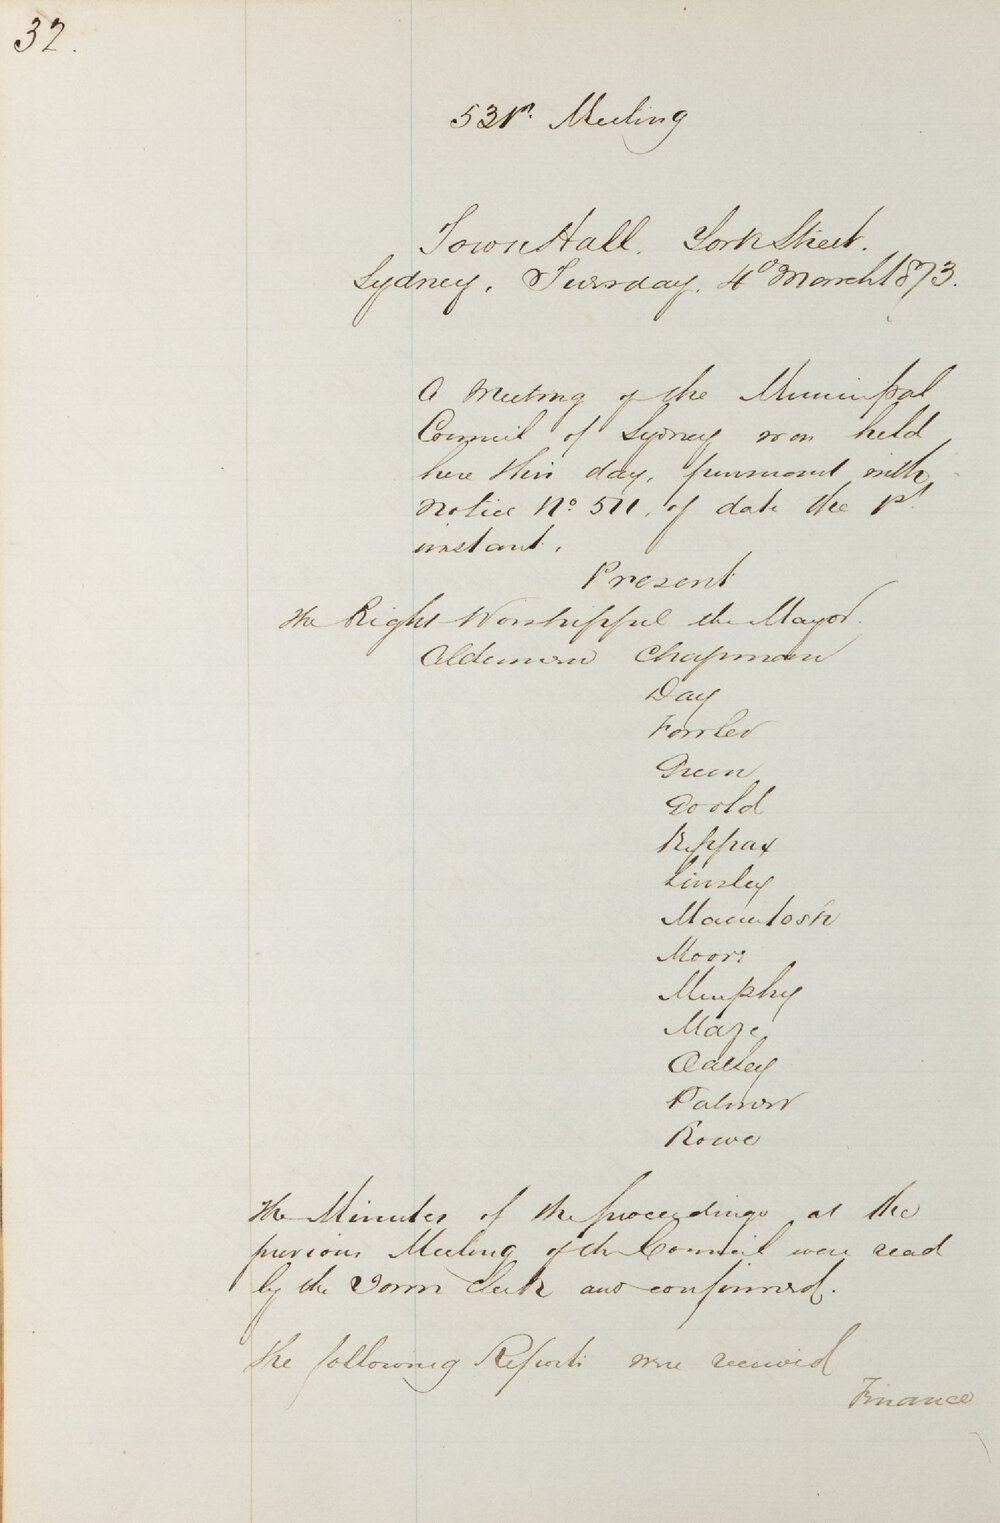 32.
531st. Meeting
Town Hall. York Street.
Sydney. Tuesday. 4th March 1873.
A Meeting of the Municipal
Council of Sydney was held
here this day, pursuant with
Notice No. 511, of date the 1st
instant.
Present
The Right Worshipful the Mayor.
Aldermen Chapman
Day
Fowler
Green
Goold
Kippax
Linsley
Macintosh
Moore
Murphy
Maze
Oatley
Palmer
Rowe
The Minutes of the proceedings at the
previous Meeting of the Council were read
by the Town Clerk and confirmed.
The following Reports were received
Finance